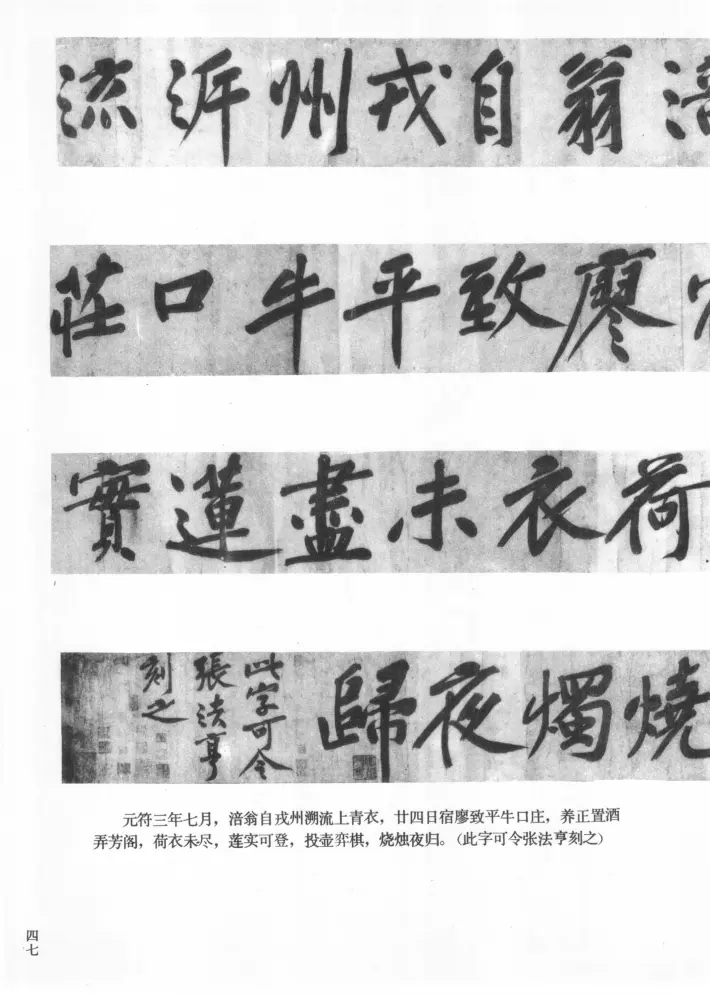 涪翁自戎州泝流
廖致平牛口莊
荷衣未盡蓮實
燒燭夜歸
此字可令
張法亨
刻之
元符三年七月，涪翁自戎州溯流上青衣，廿四日宿廖致平牛口庄，养正置酒
弄芳阁，荷衣未尽，莲实可登，投壶弈棋，烧烛夜归。(此字可令张法亨刻之)
四七